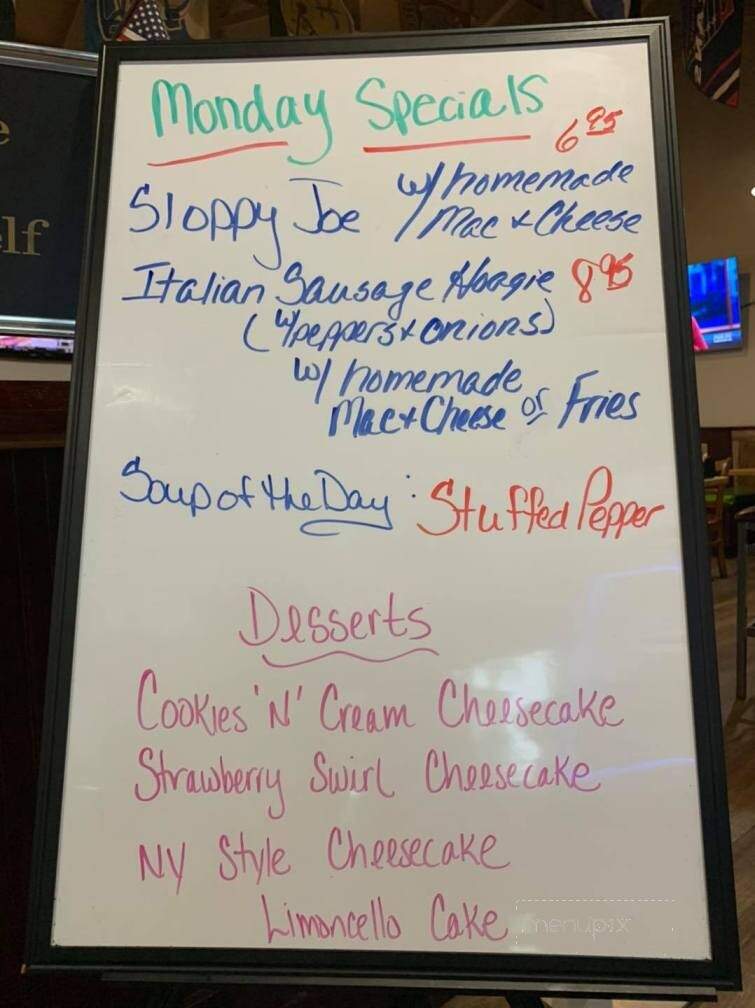 Monday Specials
6 95
Sloppy Joe w/ homemade
Mac & Cheese
Italian Sausage Hoagie 8 95
(w/peppers & onions)
w/ homemade
Mac & Cheese or Fries
Soup of the Day: Stuffed Pepper
Desserts
Cookies 'N' Cream Cheesecake
Strawberry Swirl Cheesecake
NY Style Cheesecake
Limoncello Cake
menupix
e
lf